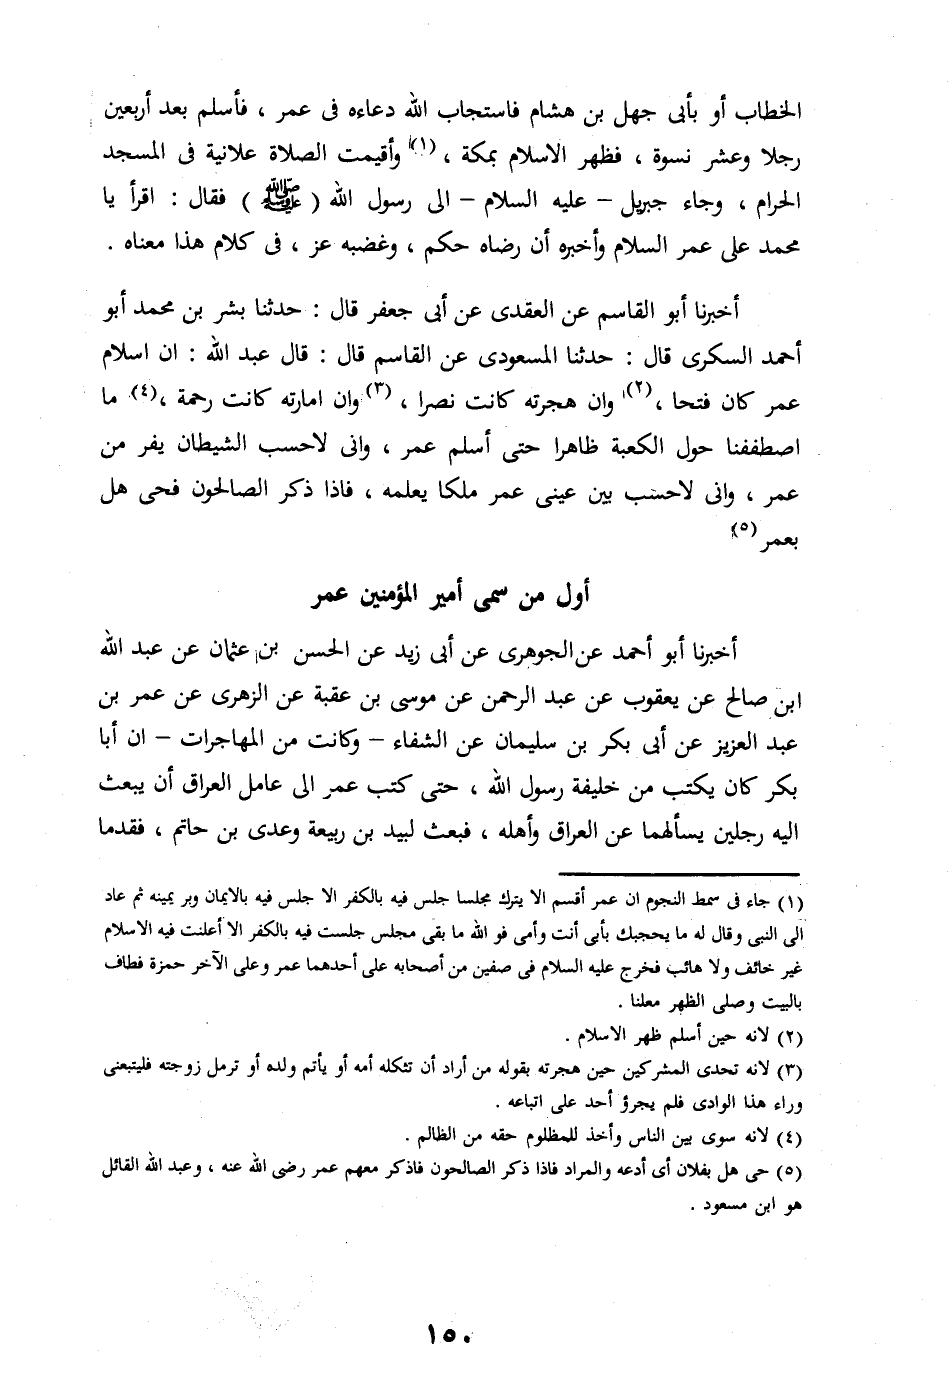 الخطاب أو بأبى جهل بن هشام فاستجاب الله دعاءه فى عمر ، فأسلم بعد أربعين
رجلا وعشر نسوة ، فظهر الاسلام بمكة ، (١) وأقيمت الصلاة علانية فى المسجد
الحرام ، وجاء جبريل – عليه السلام – الى رسول الله ( ﷺ ) فقال : اقرأ يا
محمد على عمر السلام وأخبره أن رضاه حكم ، وغضبه عز ، فى كلام هذا معناه .
أخبرنا أبو القاسم عن العقدى عن أبى جعفر قال : حدثنا بشر بن محمد أبو
أحمد السكرى قال : حدثنا المسعودى عن القاسم قال : قال عبد الله : ان اسلام
عمر كان فتحا ، (٢) وان هجرته كانت نصرا ، (٣) وان امارته كانت رحمة ، (٤) ما
اصطففنا حول الكعبة ظاهرا حتى أسلم عمر ، وانى لاحسب الشيطان يفر من
عمر ، وانى لاحسب بين عينى عمر ملكا يعلمه ، فاذا ذكر الصالحون فحى هل
بعمر (٥)
أول من سمى أمير المؤمنين عمر
أخبرنا أبو أحمد عن الجوهرى عن أبى زيد عن الحسن بن عثمان عن عبد الله
ابن صالح عن يعقوب عن عبد الرحمن عن موسى بن عقبة عن الزهرى عن عمر بن
عبد العزيز عن أبى بكر بن سليمان عن الشفاء – وكانت من المهاجرات – ان أبا
بكر كان يكتب من خليفة رسول الله ، حتى كتب عمر الى عامل العراق أن يبعث
اليه رجلين يسألهما عن العراق وأهله ، فبعث لبيد بن ربيعة وعدى بن حاتم ، فقدما
(١) جاء فى سمط النجوم ان عمر أقسم الا يترك مجلسا جلس فيه بالكفر الا جلس فيه بالايمان وبر يمينه ثم عاد
الى النبى وقال له ما يحجبك بأبى أنت وأمى فو الله ما بقى مجلس جلست فيه بالكفر الا أعلنت فيه الاسلام
غير خائف ولا هائب فخرج عليه السلام فى صفين من أصحابه على أحدهما عمر وعلى الآخر حمزة فطاف
بالبيت وصلى الظهر معلنا .
(٢) لانه حين أسلم ظهر الاسلام .
(٣) لانه تحدى المشركين حين هجرته بقوله من أراد أن تثكله أمه أو يأتم ولده أو ترمل زوجته فليتبعنى
وراء هذا الوادى فلم يجرؤ أحد على اتباعه .
(٤) لانه سوى بين الناس وأخذ للمظلوم حقه من الظالم .
(٥) حى هل بفلان أى أدعه والمراد فاذا ذكر الصالحون فاذكر معهم عمر رضى الله عنه ، وعبد الله القائل
هو ابن مسعود .
١٥٠